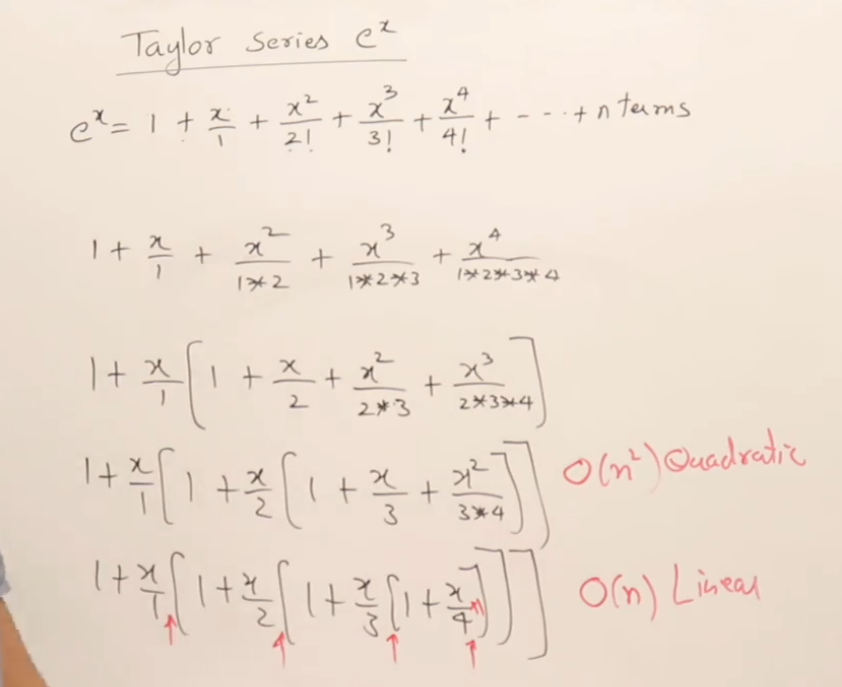 Taylor Series e^x
e^x = 1 + x/1 + x^2/2! + x^3/3! + x^4/4! + - - - · · + n terms
1 + x/1 + x^2/(1*2) + x^3/(1*2*3) + x^4/(1*2*3*4)
1 + x/1 [ 1 + x/2 + x^2/(2*3) + x^3/(2*3*4) ]
1 + x/1 [ 1 + x/2 [ 1 + x/3 + x^2/(3*4) ] ] O(n^2) Quadratic
1 + x/1 [ 1 + x/2 [ 1 + x/3 [ 1 + x/4 ] ] ] O(n) Linear